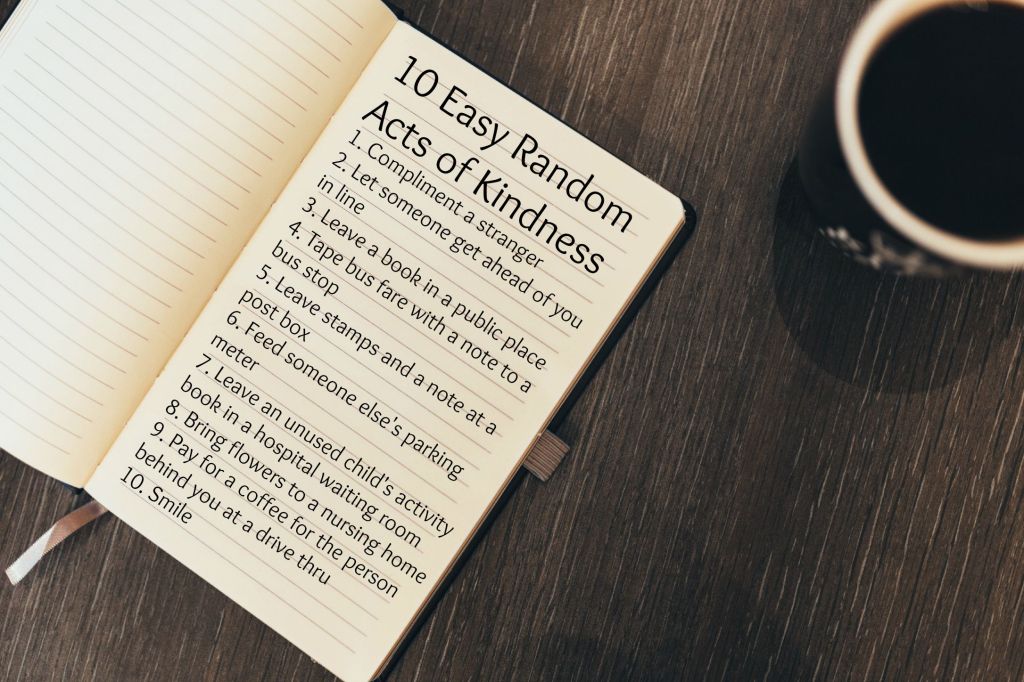 10 Easy Random
Acts of Kindness
1. Compliment a stranger
2. Let someone get ahead of you
in line
3. Leave a book in a public place
4. Tape bus fare with a note to a
bus stop
5. Leave stamps and a note at a
post box
6. Feed someone else's parking
meter
7. Leave an unused child's activity
book in a hospital waiting room
8. Bring flowers to a nursing home
9. Pay for a coffee for the person
behind you at a drive thru
10. Smile